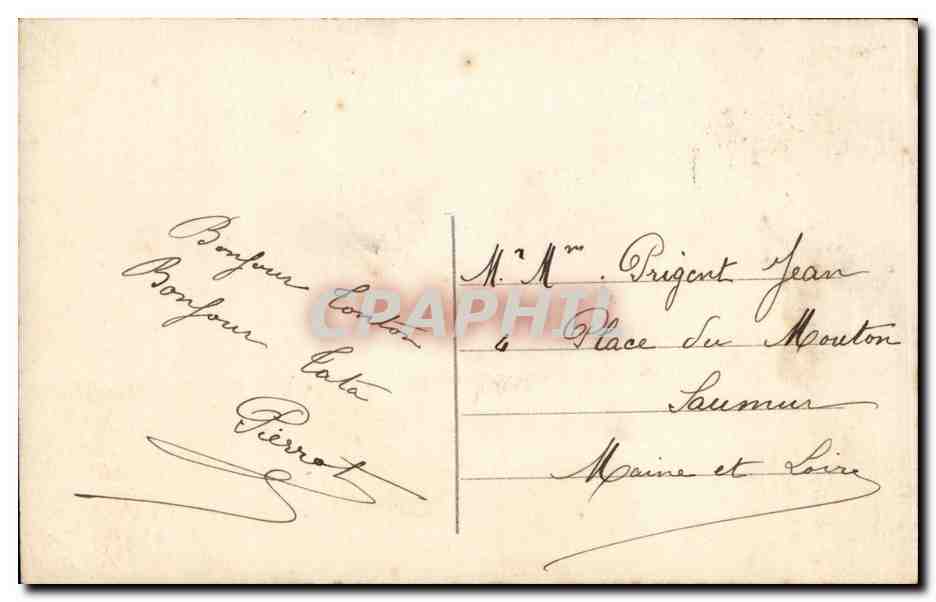 Bonjour Tonton
Bonjour Tata
Pierrot
Mr Mme Prigent Jean
4 Place du Mouton
Saumur
Maine et Loire
CPAPHIL